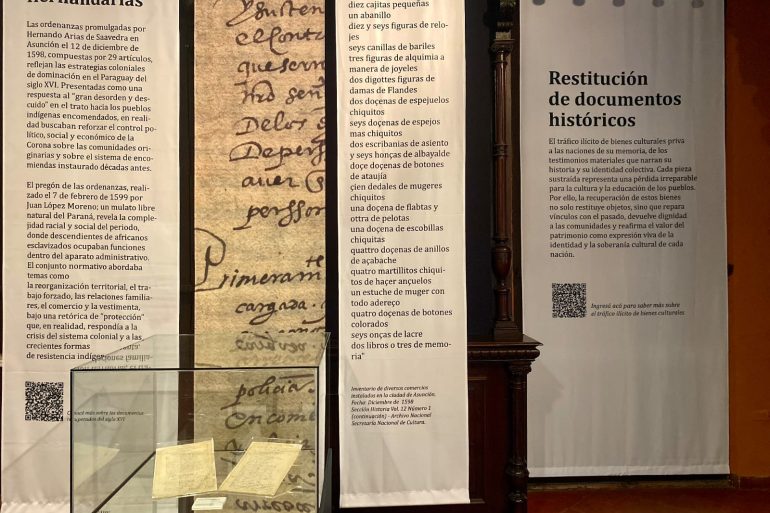 hernandarias
Las ordenanzas promulgadas por
Hernando Arias de Saavedra en
Asunción el 12 de diciembre de
1598, compuestas por 29 artículos,
reflejan las estrategias coloniales
de dominación en el Paraguay del
siglo XVI. Presentadas como una
respuesta al "gran desorden y des-
cuido" en el trato hacia los pueblos
indígenas encomendados, en reali-
dad buscaban reforzar el control po-
lítico, social y económico de la
Corona sobre las comunidades ori-
ginarias y sobre el sistema de enco-
miendas instaurado décadas antes.
El pregón de las ordenanzas, reali-
zado el 7 de febrero de 1599 por
Juan López Moreno; un mulato libre
natural del Paraná, revela la comple-
jidad racial y social del periodo,
donde descendientes de africanos
esclavizados ocupaban funciones
dentro del aparato administrativo.
El conjunto normativo abordaba
temas como
la reorganización territorial, el tra-
bajo forzado, las relaciones familia-
res, el comercio y la vestimenta,
bajo una retórica de "protección"
que, en realidad, respondía a la
crisis del sistema colonial y a las
crecientes formas
de resistencia
más sobre los documentos
recuperados del siglo XVI
y susten
el Cont
que serra
Señ
De los
De per
auer
perssor
Primeram
cargaza
policia
en come
diez cajitas pequeñas
un abanillo
diez y seys figuras de relo-
jes
seys canillas de bariles
tres figuras de alquimia a
manera de joyeles
dos digottes figuras de
damas de Flandes
dos doçenas de espejuelos
chiquitos
seys doçenas de espejos
mas chiquitos
dos escribanias de asiento
y seys honças de albayalde
doçe doçenas de botones
de ataujía
çien dedales de mugeres
chiquitos
una doçena de flabtas y
ottra de pelotas
una doçena de escobillas
chiquitas
quattro doçenas de anillos
de açabache
quatro martillitos chiqui-
tos de haçer ançuelos
un estuche de muger con
todo adereço
quatro doçenas de botones
colorados
seys onças de lacre
dos libros o tres de memo-
ria"
Inventario de diversos comercios
instalados en la ciudad de Asunción.
Fecha: Diciembre de 1598
Sección Historia Vol. 12 Número 1
(continuación) - Archivo Nacional
Secretaría Nacional de Cultura.
Restitución
de documentos
históricos
El tráfico ilícito de bienes culturales priva
a las naciones de su memoria, de los
testimonios materiales que narran su
historia y su identidad colectiva. Cada pieza
sustraída representa una pérdida irreparable
para la cultura y la educación de los pueblos.
Por ello, la recuperación de estos bienes
no solo restituye objetos, sino que repara
vínculos con el pasado, devuelve dignidad
a las comunidades y reafirma el valor del
patrimonio como expresión viva de la
identidad y la soberanía cultural de cada
nación.
Ingresá acá para saber más sobre
el tráfico ilícito de bienes culturales